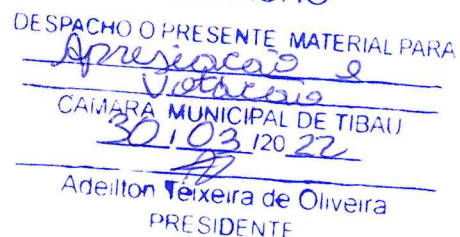 DESPACHO O PRESENTE MATERIAL PARA
Apresiacaõ e
Votacaio
CAMARA MUNICIPAL DE TIBAU
30 / 03 /20 22
Adeilton Teixeira de Oliveira
PRESIDENTE